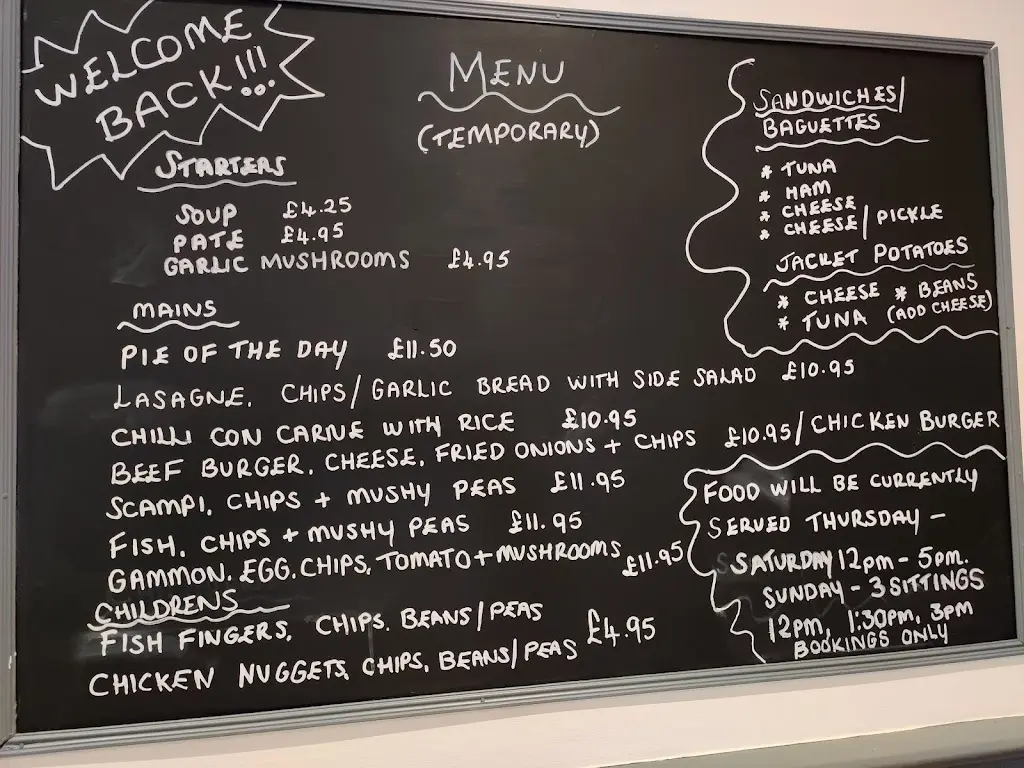 WELCOME
BACK!!!
MENU
(TEMPORARY)
STARTERS
SOUP £4.25
PATE £4.95
GARLIC MUSHROOMS £4.95
MAINS
PIE OF THE DAY £11.50
LASAGNE, CHIPS/GARLIC BREAD WITH SIDE SALAD £10.95
CHILLI CON CARNE WITH RICE £10.95
BEEF BURGER, CHEESE, FRIED ONIONS + CHIPS £10.95/CHICKEN BURGER
SCAMPI, CHIPS + MUSHY PEAS £11.95
FISH, CHIPS + MUSHY PEAS £11.95
GAMMON, EGG, CHIPS, TOMATO + MUSHROOMS £11.95
CHILDRENS
FISH FINGERS, CHIPS, BEANS/PEAS
£4.95
CHICKEN NUGGETS, CHIPS, BEANS/PEAS
SANDWICHES/
BAGUETTES
* TUNA
* HAM
* CHEESE
* CHEESE/PICKLE
JACKET POTATOES
* CHEESE * BEANS
* TUNA (ADD CHEESE)
FOOD WILL BE CURRENTLY
SERVED THURSDAY –
SATURDAY 12pm – 5pm.
SUNDAY – 3 SITTINGS
12pm, 1:30pm, 3pm
BOOKINGS ONLY